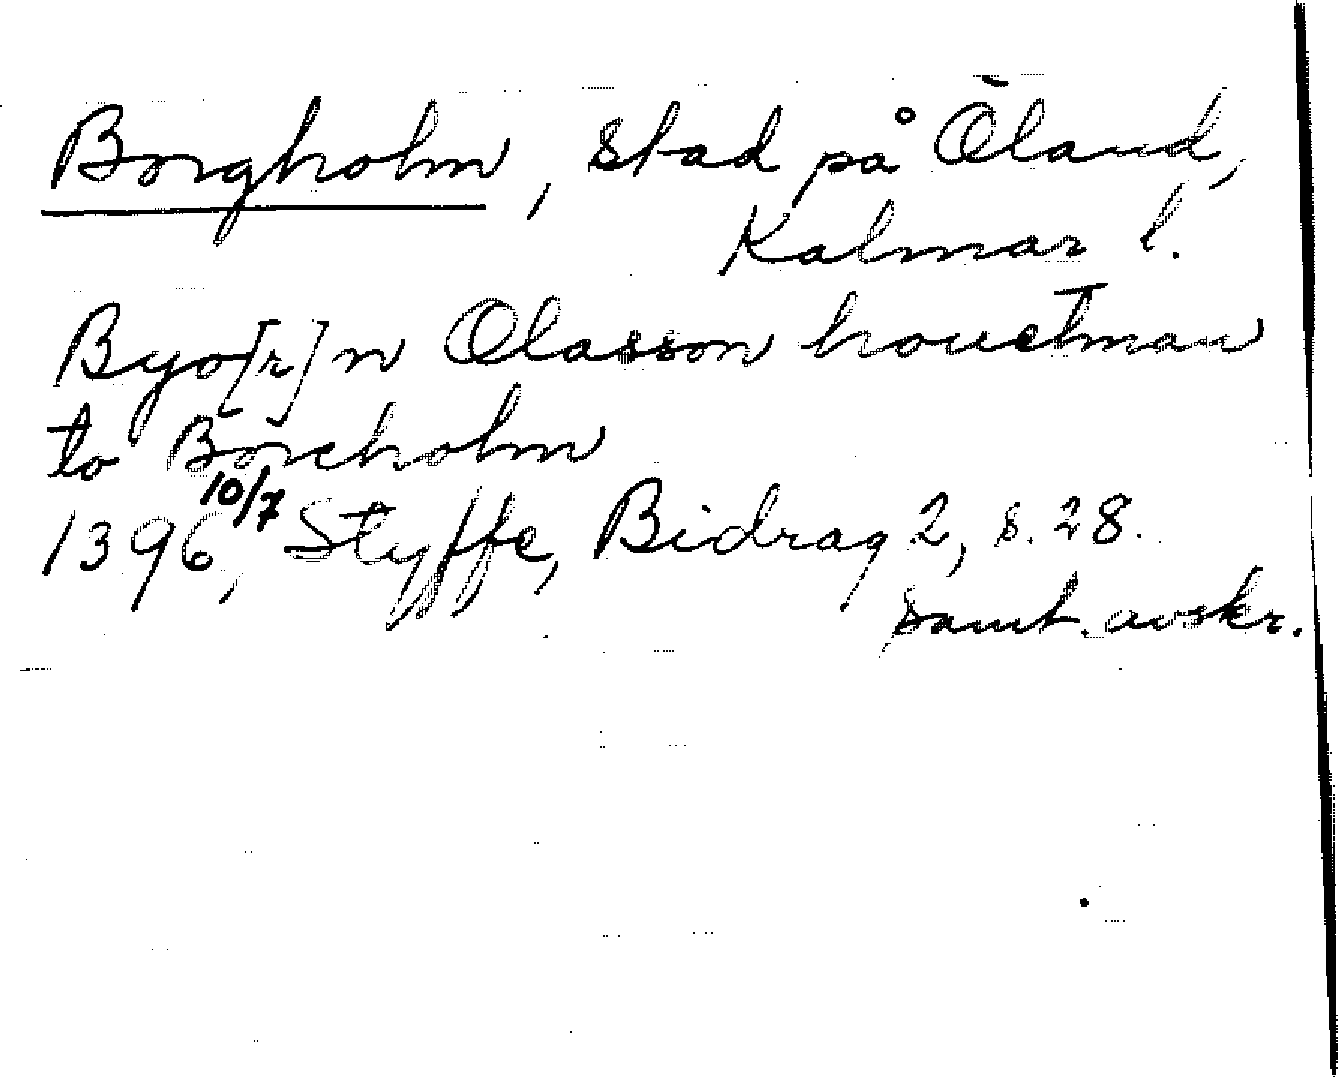 Borgholm, stad på Öland,
Kalmar l.
Byo[r]n Olasson houetman
to Borcholm
1396 10/7, Styffe, Bidrag 2, s. 28.
samt. avskr.